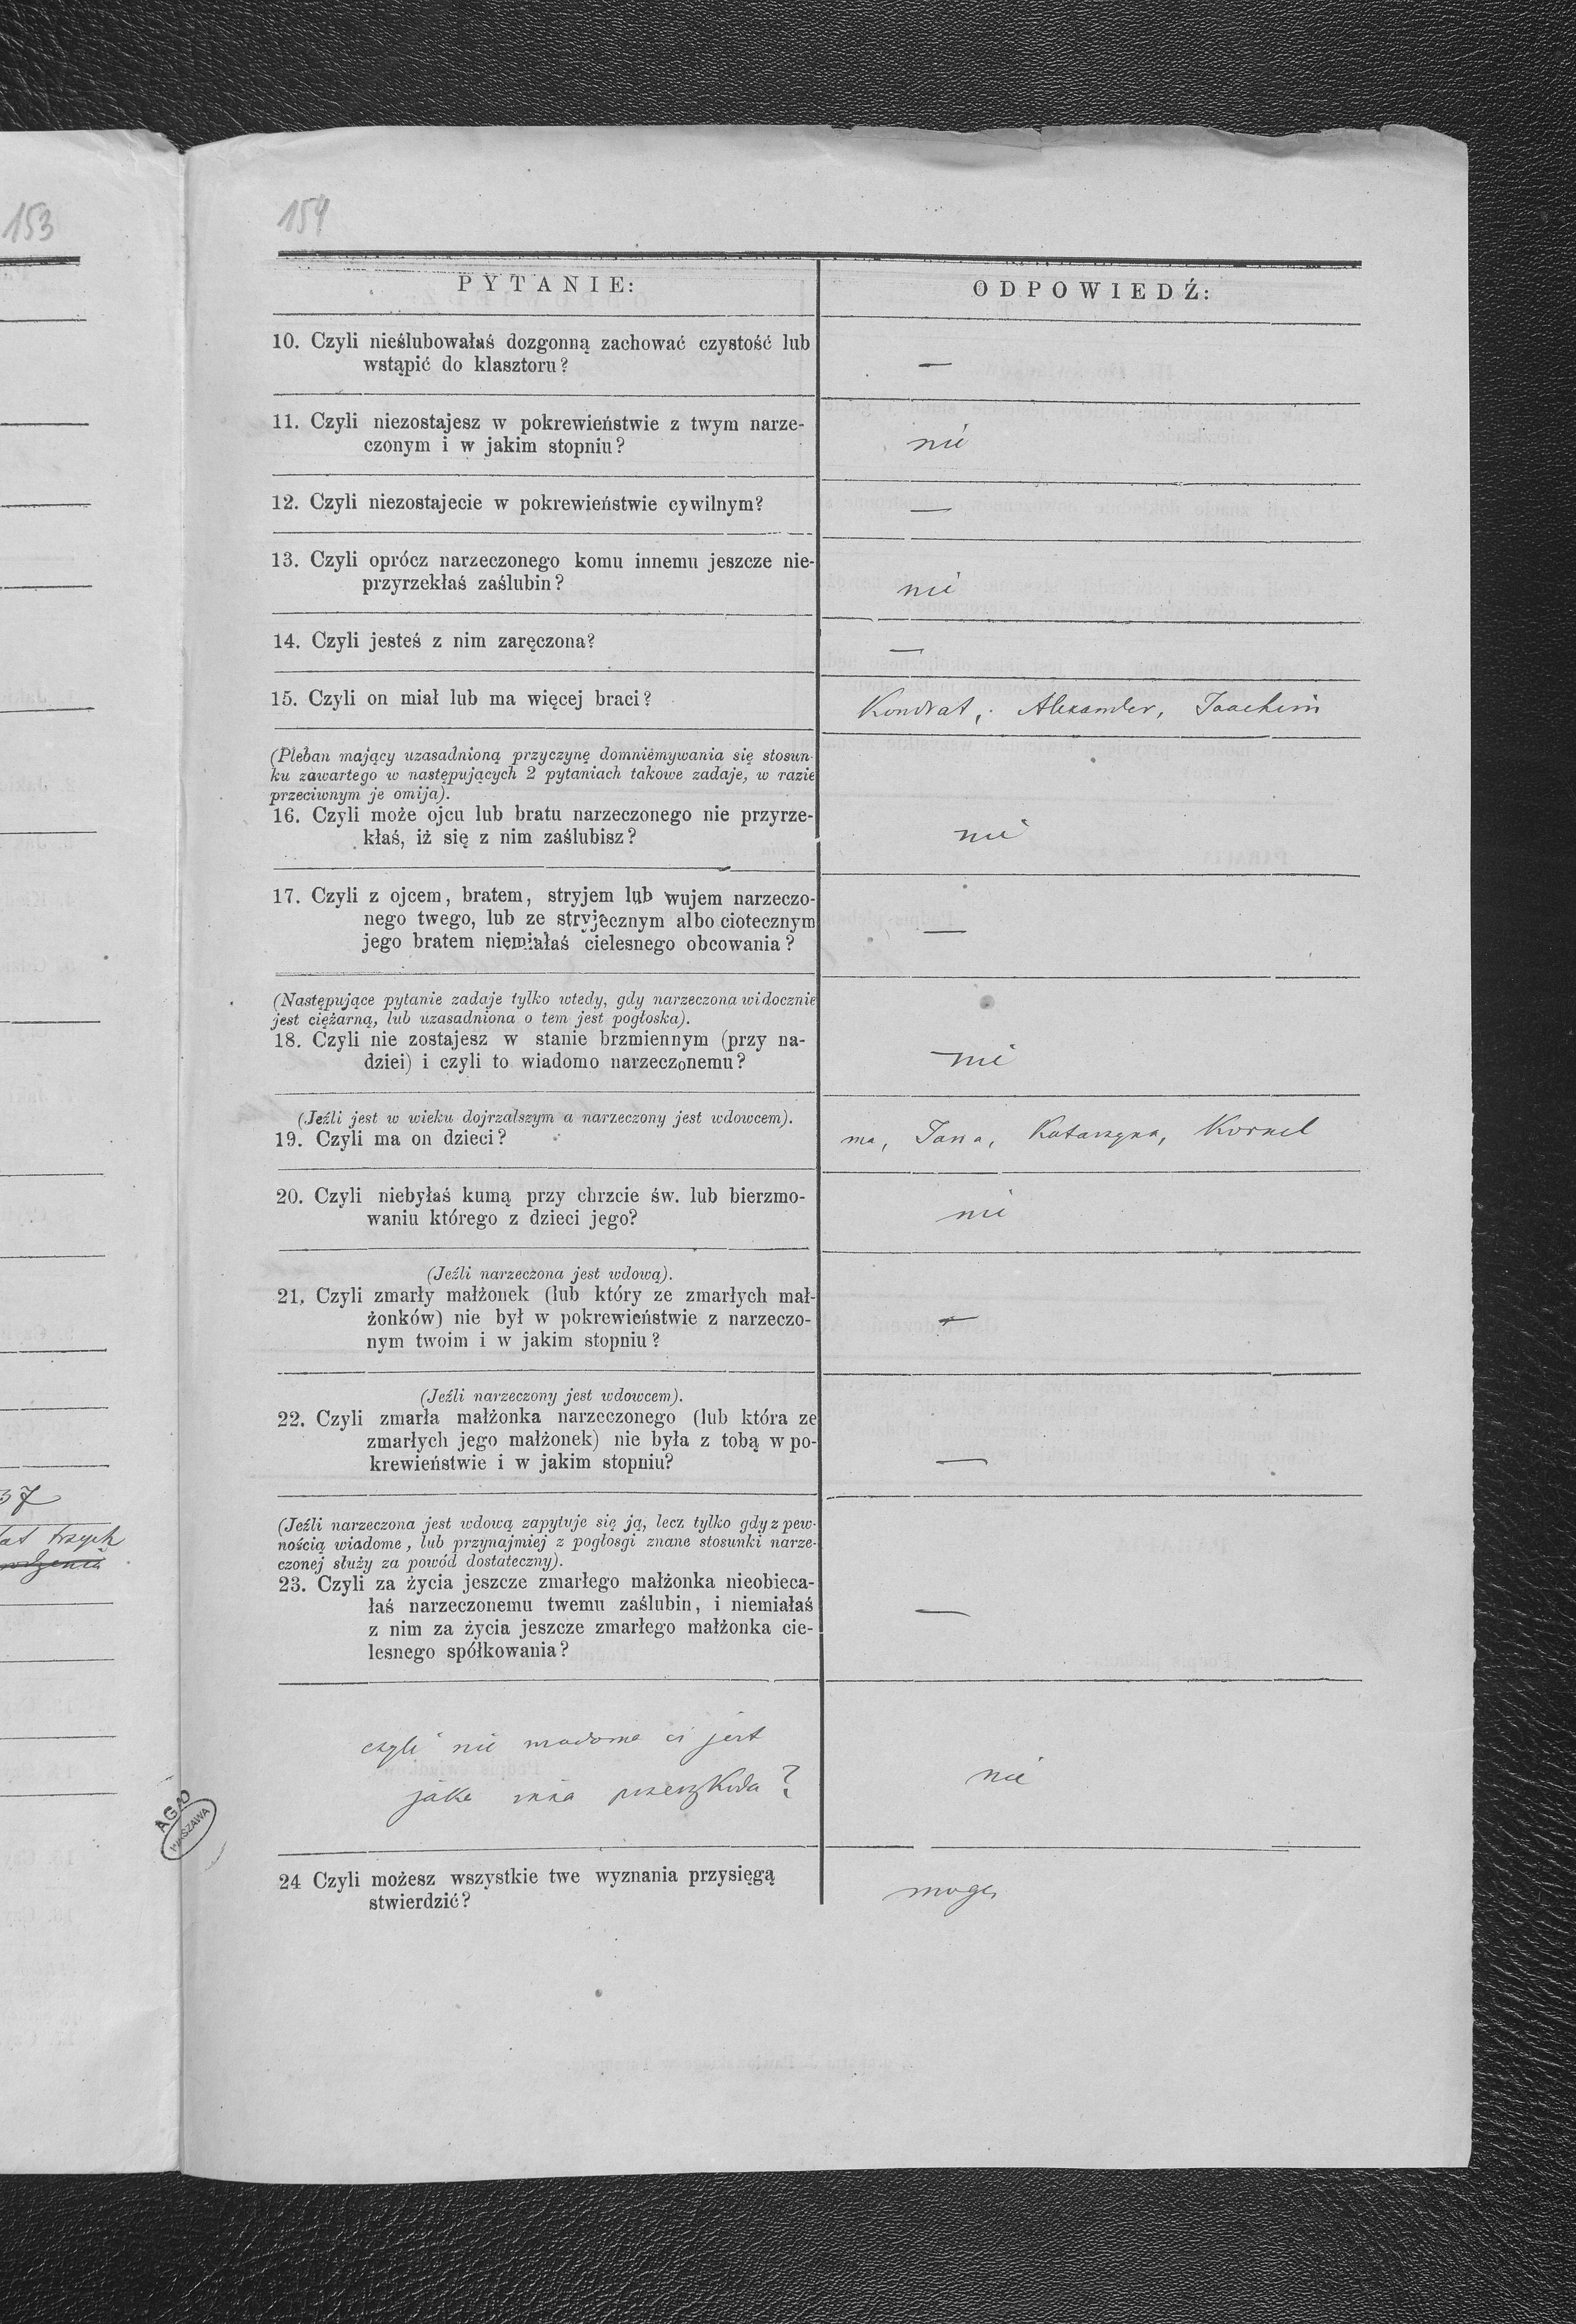 153
154
PYTANIE:
ODPOWIEDŹ:
10. Czyli nieślubowałaś dozgonną zachować czystość lub
wstąpić do klasztoru?
—
11. Czyli niezostajesz w pokrewieństwie z twym narze-
czonym i w jakim stopniu?
nie
12. Czyli niezostajecie w pokrewieństwie cywilnym?
—
13. Czyli oprócz narzeczonego komu innemu jeszcze nie-
przyrzekłaś zaślubin?
nie
14. Czyli jesteś z nim zaręczona?
—
15. Czyli on miał lub ma więcej braci?
Kondrat, Alexander, Joachim
(Pleban mający uzasadnioną przyczynę domniemywania się stosun-
ku zawartego w następujących 2 pytaniach takowe zadaje, w razie
przeciwnym je omija).
16. Czyli może ojcu lub bratu narzeczonego nie przyrze-
kłaś, iż się z nim zaślubisz?
nie
17. Czyli z ojcem, bratem, stryjem lub wujem narzeczo-
nego twego, lub ze stryjecznym albo ciotecznym
jego bratem niemiałaś cielesnego obcowania?
—
(Następujące pytanie zadaje tylko wtedy, gdy narzeczona widocznie
jest ciężarną, lub uzasadniona o tem jest pogłoska).
18. Czyli nie zostajesz w stanie brzmiennym (przy na-
dziei) i czyli to wiadomo narzeczonemu?
nie
(Jeźli jest w wieku dojrzalszym a narzeczony jest wdowcem).
19. Czyli ma on dzieci?
ma, Jana, Katarzyna, Kornel
20. Czyli niebyłaś kumą przy chrzcie św. lub bierzmo-
waniu którego z dzieci jego?
nie
(Jeźli narzeczona jest wdową).
21. Czyli zmarły małżonek (lub który ze zmarłych mał-
żonków) nie był w pokrewieństwie z narzeczo-
nym twoim i w jakim stopniu?
—
(Jeźli narzeczony jest wdowcem).
22. Czyli zmarła małżonka narzeczonego (lub która ze
zmarłych jego małżonek) nie była z tobą w po-
krewieństwie i w jakim stopniu?
—
(Jeźli narzeczona jest wdową zapytuje się ją, lecz tylko gdy z pew-
nością wiadome, lub przynajmiej z pogłosgi znane stosunki narze-
czonej służy za powód dostateczny).
23. Czyli za życia jeszcze zmarłego małżonka nieobieca-
łaś narzeczonemu twemu zaślubin, i niemiałaś
z nim za życia jeszcze zmarłego małżonka cie-
lesnego spółkowania?
—
czyli nie wiadoma ci jest
jaka inna przeszkoda?
nie
24 Czyli możesz wszystkie twe wyznania przysięgą
stwierdzić?
mogę
37
lat trzech
AGAD
WARSZAWA